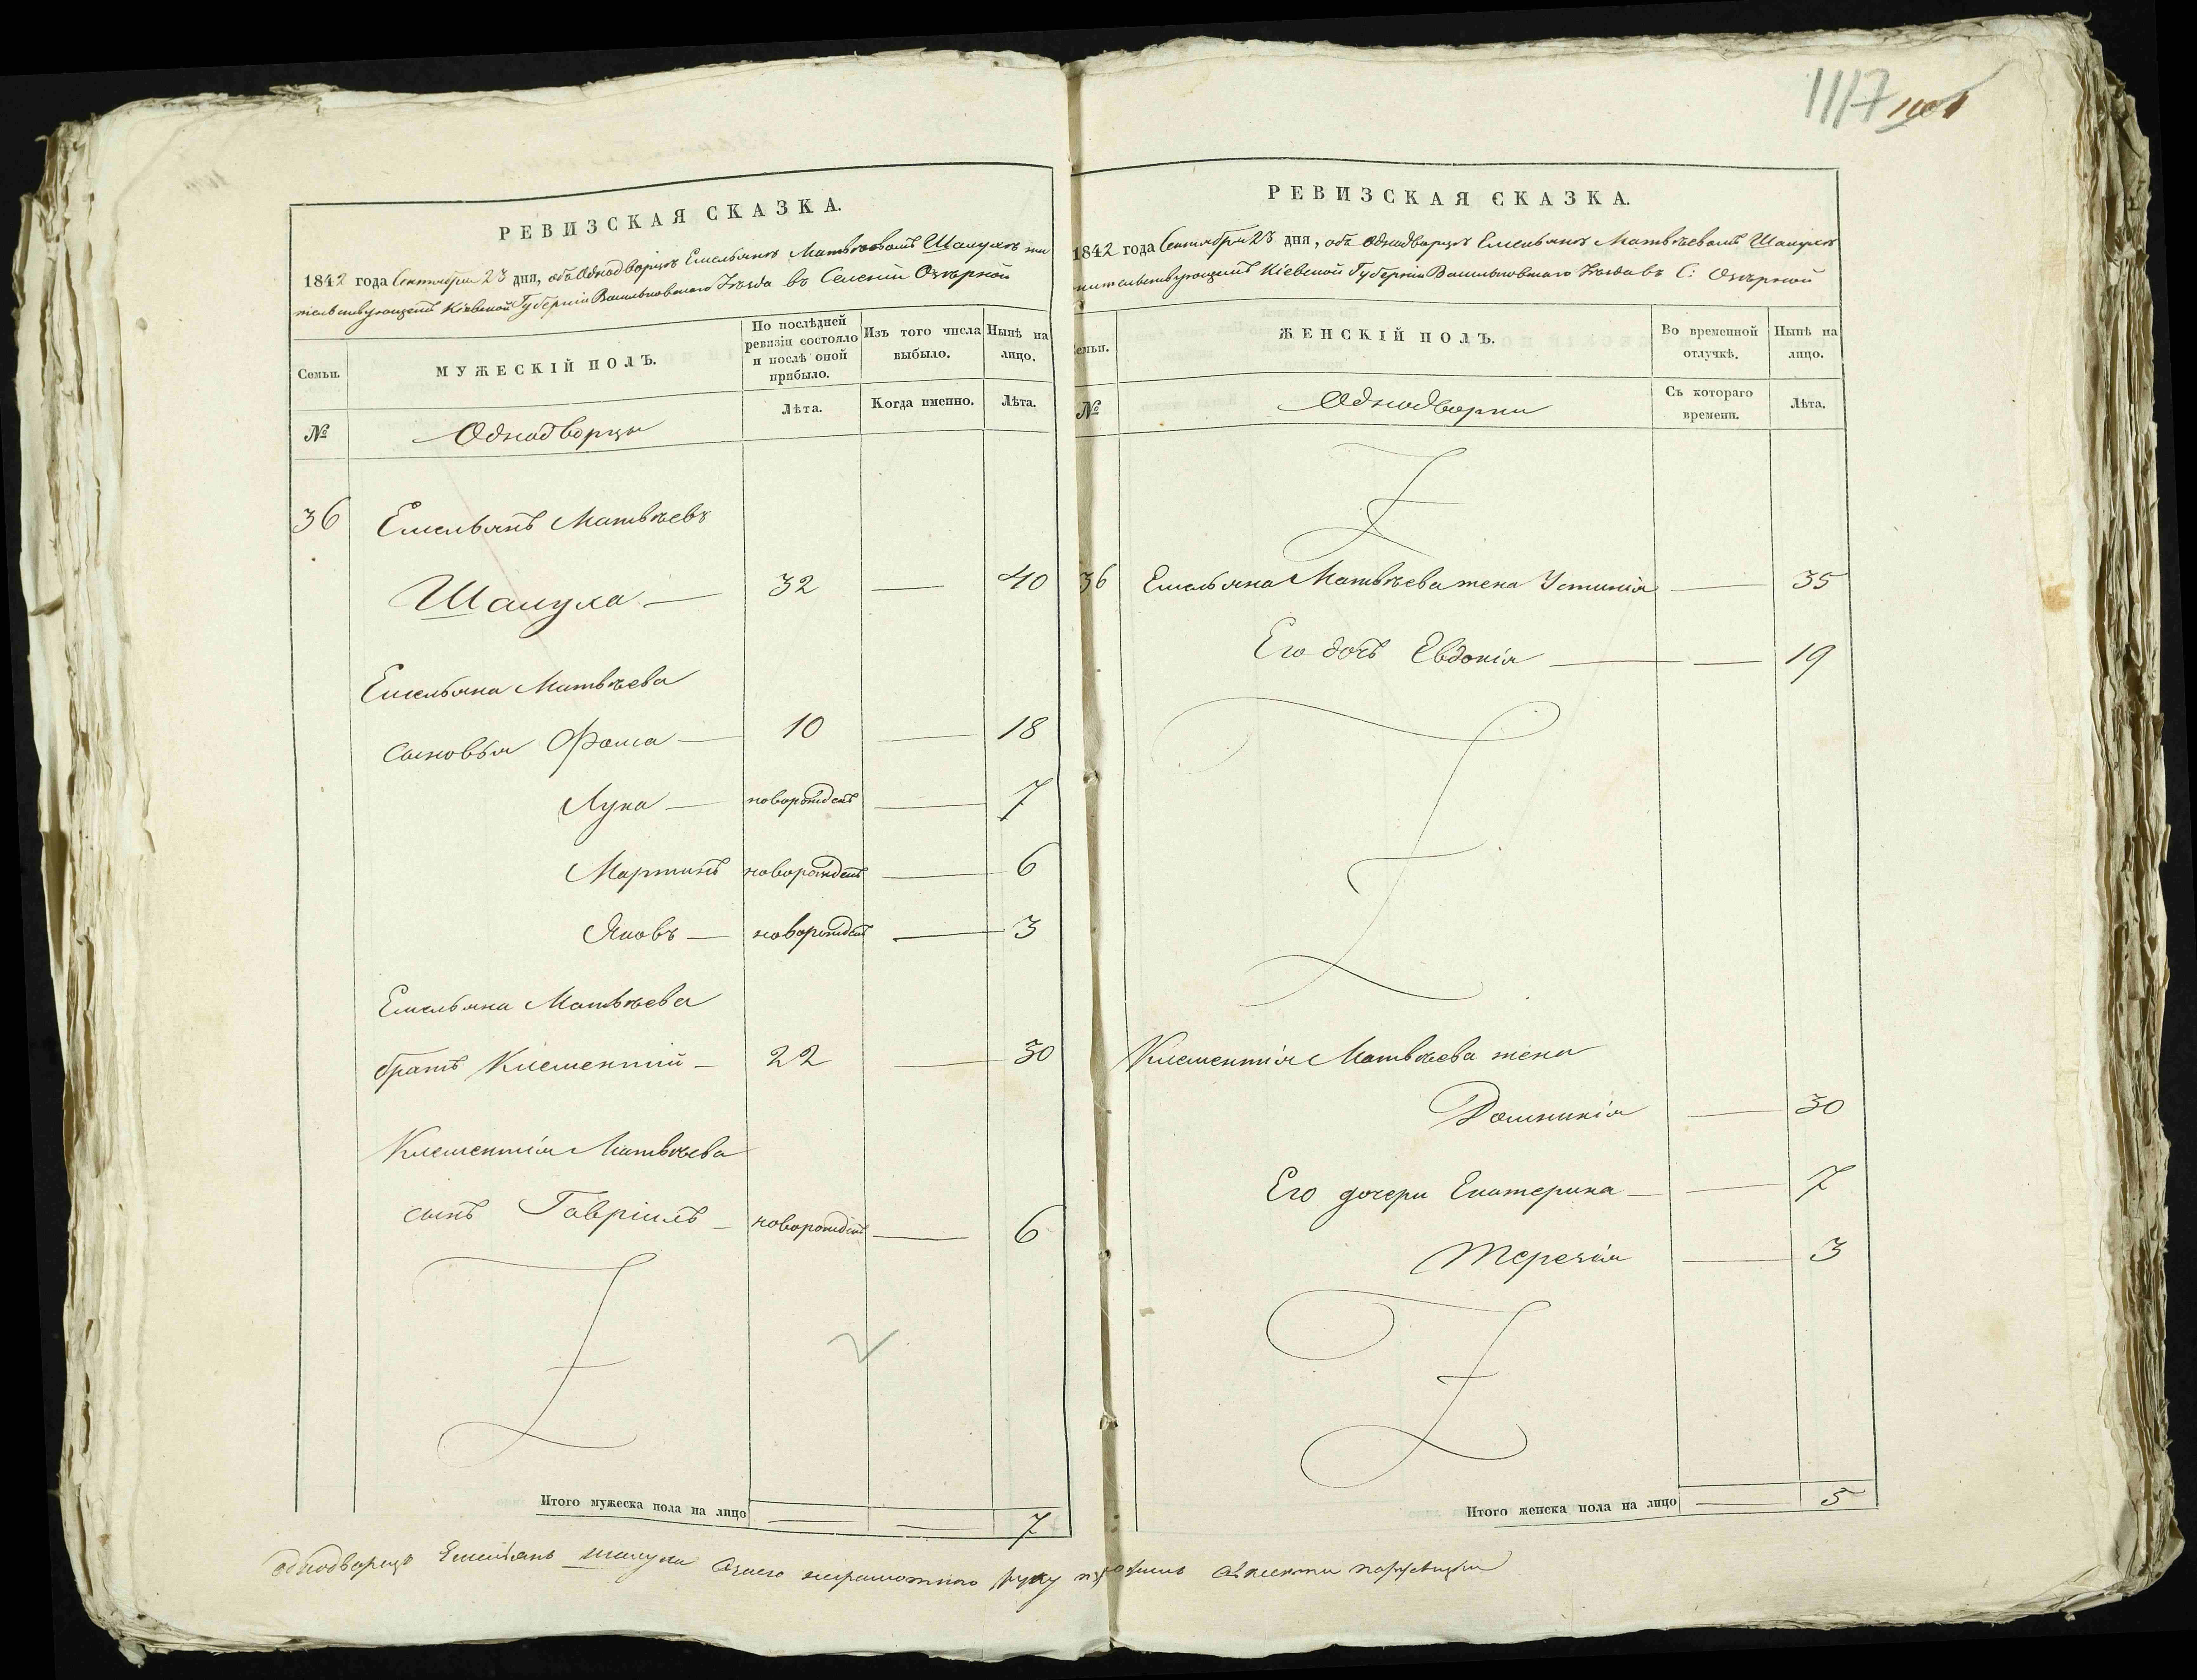 1117 1101
РЕВИЗСКАЯ СКАЗКА.
1842 года Сентября 23 дня, объ Однодворцѣ Емельянѣ Матвѣевомъ Шалухѣ жи
тельствующемъ Кіевской Губерніи Васильковскаго Уѣзда въ Селеніи Озѣрной
Семьи.
МУЖЕСКІЙ ПОЛЪ.
По послѣдней
ревизіи состояло
и послѣ оной
прибыло.
Изъ того числа
выбыло.
Нынѣ на
лицо.
Лѣта.
Когда именно.
Лѣта.
№
Однодворцы
36 Емельянъ Матвѣевъ
Шалуха — 32 — 40
Емельяна Матвѣева
сыновья Фома — 10 — 18
Лука — новорожденъ — 7
Мартинъ новорожденъ — 6
Яковъ — новорожденъ — 3
Емельяна Матвѣева
братъ Клементій — 22 — 30
Клементія Матвѣева
сынъ Гавріилъ — новорожденъ — 6
Итого мужеска пола на лицо — — 7
РЕВИЗСКАЯ СКАЗКА.
1842 года Сентября 23 дня, объ Однодворцѣ Емельянѣ Матвѣевомъ Шалухѣ
жительствующемъ Кіевской Губерніи Васильковскаго Уѣзда въ С: Озѣрной
Семьи.
ЖЕНСКІЙ ПОЛЪ.
Во временной
отлучкѣ.
Нынѣ на
лицо.
Съ котораго
времени.
Лѣта.
№
Однодворки
36 Емельяна Матвѣева жена Устинія — 35
Его дочь Евдокія — — 19
Клементія Матвѣева жена
Домникія — 30
Его дочери Екатерина — — 7
Терезія — 3
Итого женска пола на лицо — 5
однодворецъ Емельянъ Шалуха а занего неграмотного руку приложилъ